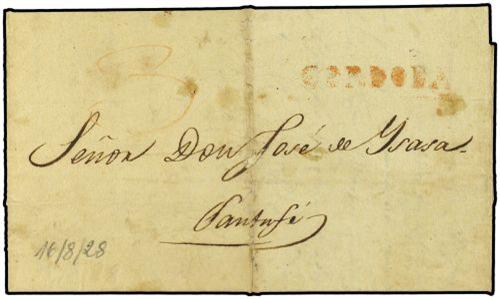 3
CORDOBA
Señor Don José de Ysasa.
Santafé
16/8/28